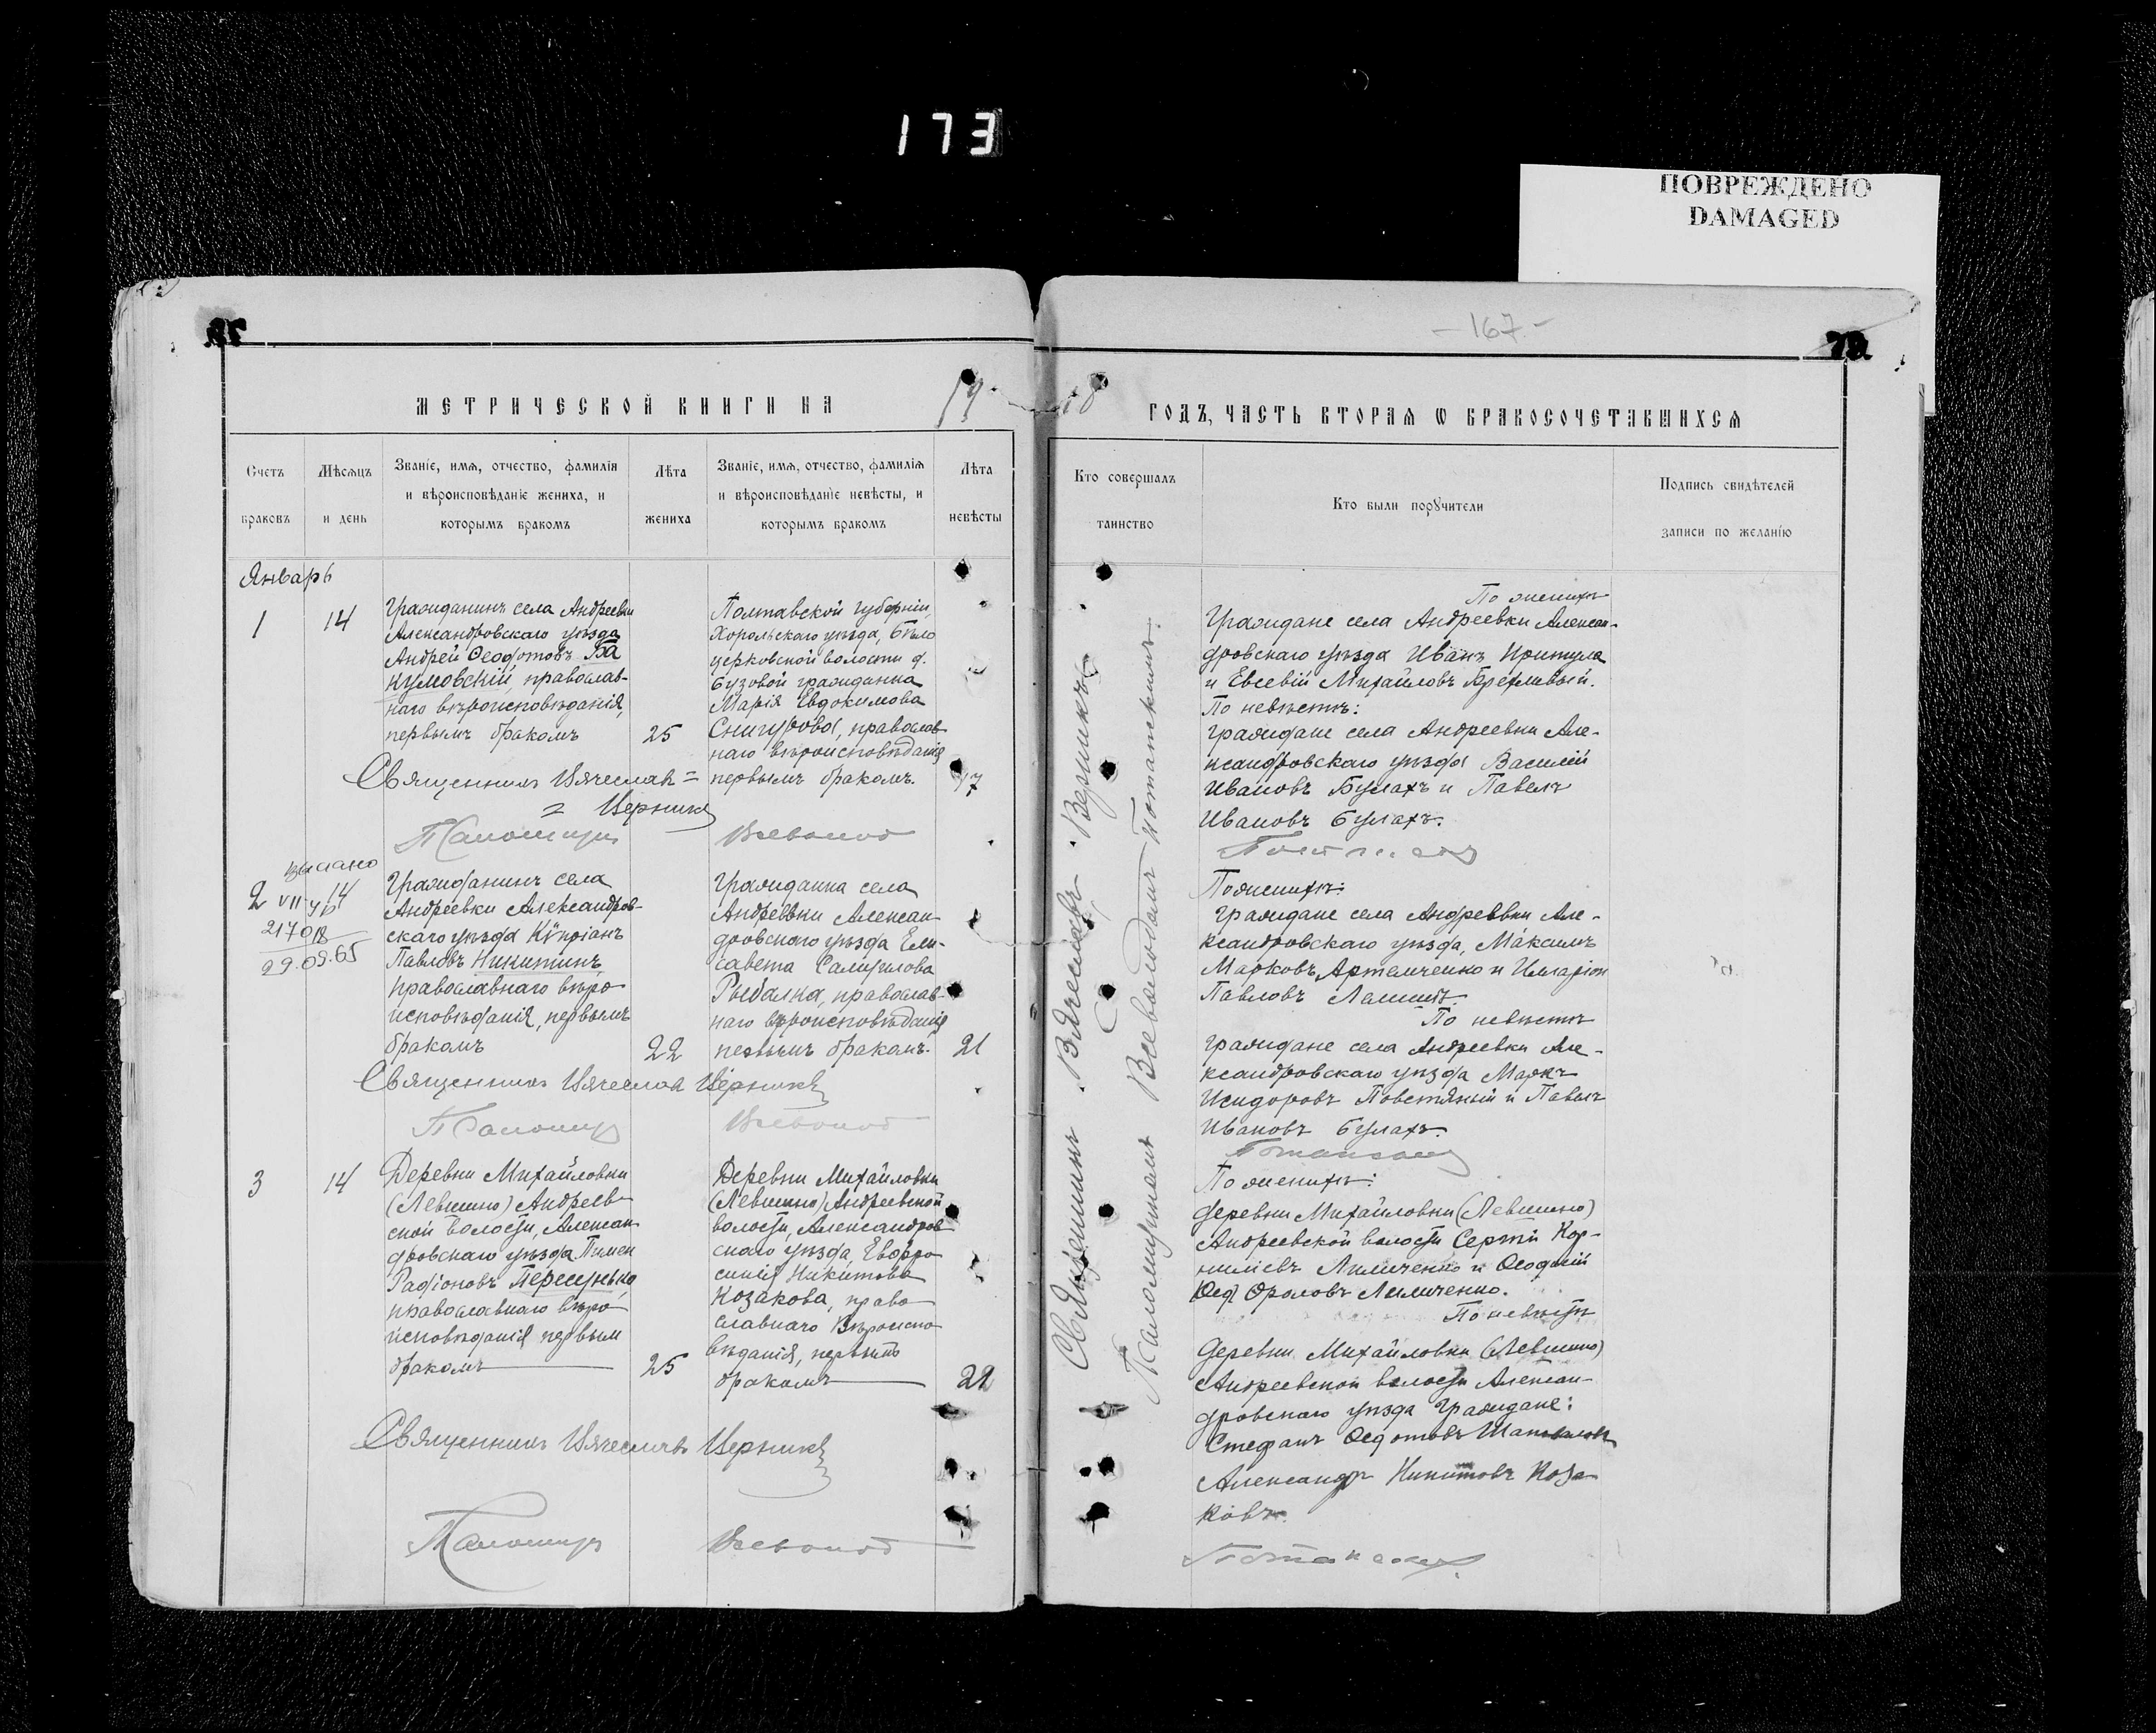 173
ПОВРЕЖДЕНО
DAMAGED
- 167 -
79
МЕТРИЧЕСКОЙ КНИГИ НА 19
18 ГОДЪ, ЧАСТЬ ВТОРАЯ Ѡ БРАКОСОЧЕТАВШИХСЯ
Счетъ браковъ
Мѣсяцъ и день
Званіе, имя, отчество, фамилія и вѣроисповѣданіе жениха, и которымъ бракомъ
Лѣта жениха
Званіе, имя, отчество, фамилія и вѣроисповѣданіе невѣсты, и которымъ бракомъ
Лѣта невѣсты
Кто совершалъ таинство
Кто были поручители
Подпись свидѣтелей записи по желанію
Январь
1 14
Гражданинъ села Андреевки
Александровскаго уѣзда
Андрей Ѳеодотовъ Ба
кумовскій, православ-
наго вѣроисповѣданія,
первымъ бракомъ 25
Полтавской губерніи,
Хорольскаго уѣзда, Бѣло
церковской волости д.
Бузовой гражданка
Марія Евдокимова
Снигурова, православ
наго вѣроисповѣданія
первымъ бракомъ. 17
Священникъ Вячеславъ =
= Черникъ
Паломщикъ Всеволод
По женихѣ
Граждане села Андреевки Алексан-
дровскаго уѣзда Иванъ Притула
и Евсевій Михайловъ
По невѣстѣ:
граждане села Андреевки Але-
ксандровскаго уѣзда Василій
Ивановъ Булахъ и Павелъ
Ивановъ Булахъ.
2 14
выдано
21708
29.09.65
Гражданинъ села
Андреевки Александров-
скаго уѣзда Кипріанъ
Павловъ Никитинъ,
православнаго вѣро
исповѣданія, первымъ
бракомъ 22
Гражданка села
Андреевки Алексан
дровскаго уѣзда Ели-
савета Самуилова
Рыбалка, православ-
наго вѣроисповѣданія
первымъ бракомъ. 21
Священникъ Вячеславъ Черникъ
Всеволод
По женихѣ:
Граждане села Андреевки Але-
ксандровскаго уѣзда, Максимъ
Марковъ Артемченко и Илларіон
Павловъ
По невѣстѣ
Граждане села Андреевки Але-
ксандровскаго уѣзда Маркъ
Исидоровъ Повстяный и Павелъ
Ивановъ Булахъ.
3 14
Деревни Михайловки
(Левшино) Андреев
ской волости, Алексан
дровскаго уѣзда Пимен
Радіоновъ Пересунько,
православнаго вѣро
исповѣданія первым
бракомъ 25
Деревни Михайловки
(Левшино) Андреевской
волости, Александров
скаго уѣзда, Евфро
синія Никитова
Козакова, право
славнаго вѣроиспо
вѣданія, первымъ
бракомъ 22
Священникъ Вячеславъ Черникъ
Всеволод
По женихѣ:
деревни Михайловки (Левшино)
Андреевской волости Сергій Кор-
ниліевъ Лимченко и Ѳеодосій
По невѣстѣ
Деревни Михайловки (Левшино)
Андреевской волости Алексан-
дровскаго уѣзда Граждане:
Стефанъ Ѳедотовъ Шаповаловъ
Александръ Никитовъ Коза
ковъ.
Священникъ Вячеславъ Черникъ
Всеволодомъ